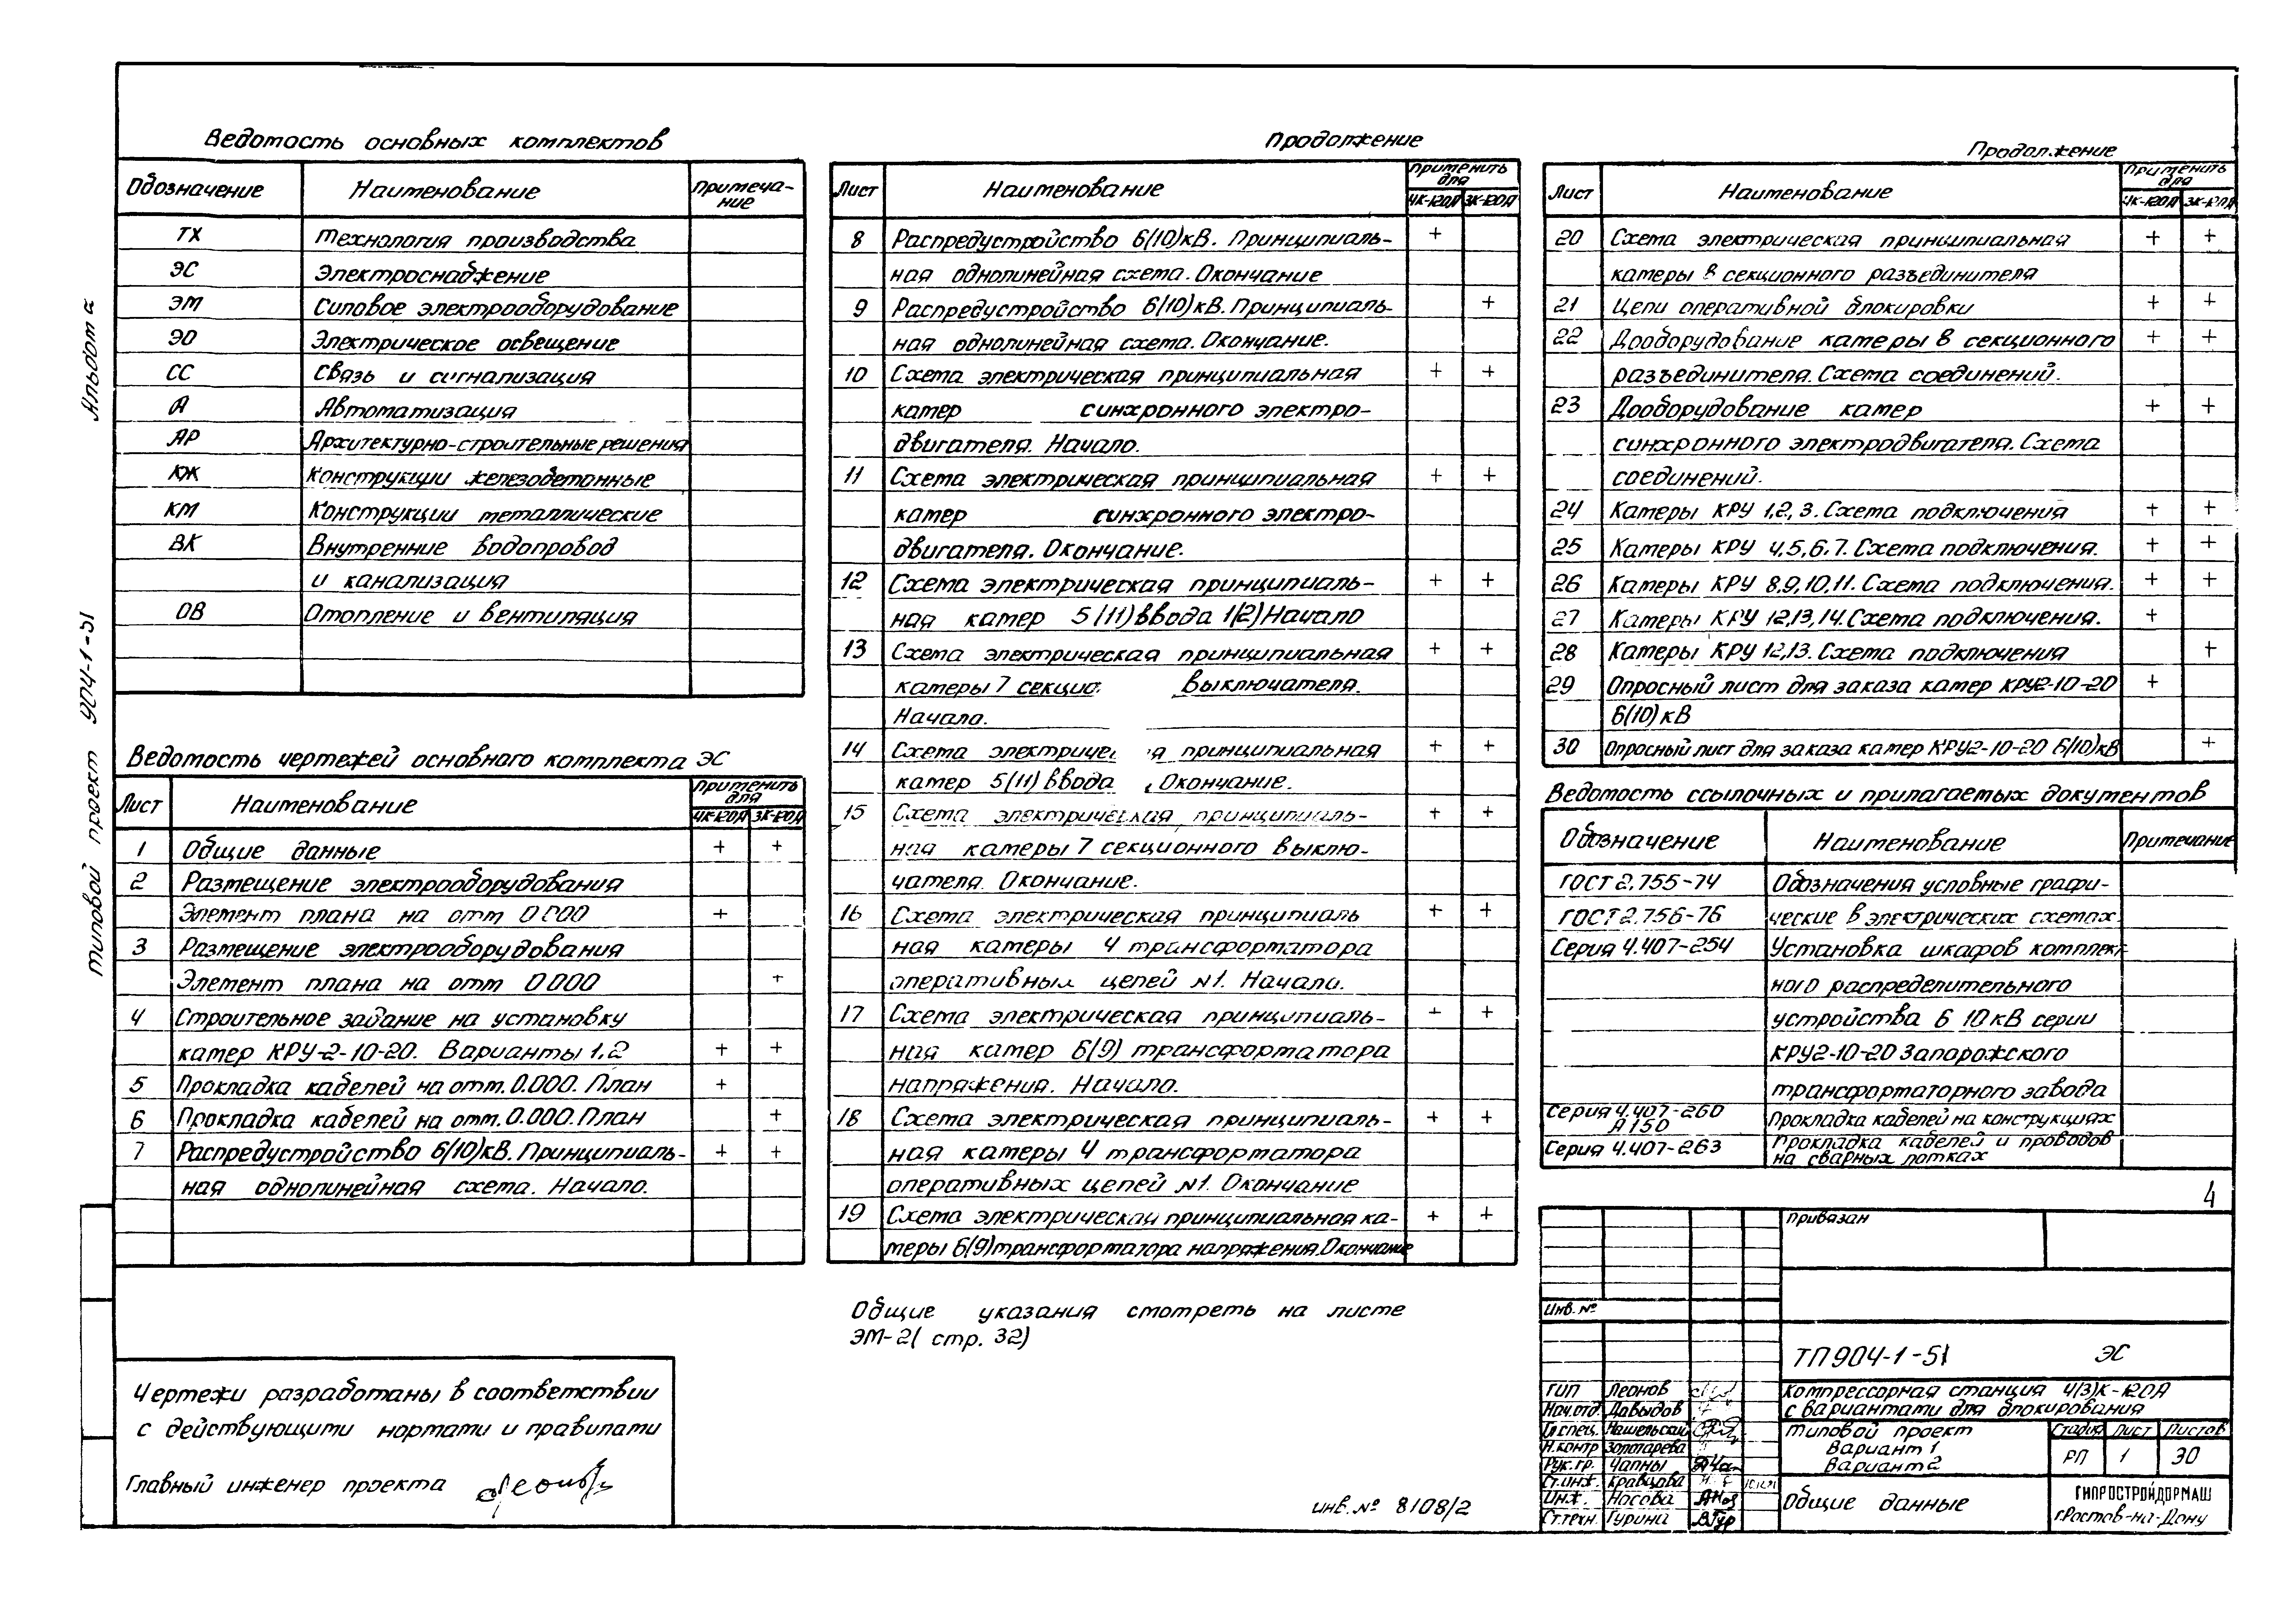 Альбом 2
типовой проект 904-1-51
Ведомость основных комплектов
Обозначение Наименование Примеча-
ние
ТХ Технология производства
ЭС Электроснабжение
ЭМ Силовое электрооборудование
ЭО Электрическое освещение
СС Связь и сигнализация
А Автоматизация
АР Архитектурно-строительные решения
КЖ Конструкции железобетонные
КМ Конструкции металлические
ВК Внутренние водопровод
и канализация
ОВ Отопление и вентиляция
Ведомость чертежей основного комплекта ЭС
Лист Наименование Применить
для
4К-120А 3К-120А
1 Общие данные + +
2 Размещение электрооборудования
Элемент плана на отм 0 000 +
3 Размещение электрооборудования
Элемент плана на отм 0 000 +
4 Строительное задание на установку
камер КРУ-2-10-20. Варианты 1,2 + +
5 Прокладка кабелей на отм. 0.000. План +
6 Прокладка кабелей на отм. 0.000. План +
7 Распредустройство 6(10)кВ. Принципиаль- + +
ная однолинейная схема. Начало.
Чертежи разработаны в соответствии
с действующими нормами и правилами
Главный инженер проекта
Продолжение
Лист Наименование Применить
для
4К-120А 3К-120А
8 Распредустройство 6(10)кВ. Принципиаль- +
ная однолинейная схема. Окончание
9 Распредустройство 6(10)кВ. Принципиаль- +
ная однолинейная схема. Окончание.
10 Схема электрическая принципиальная + +
камер синхронного электро-
двигателя. Начало.
11 Схема электрическая принципиальная + +
камер синхронного электро-
двигателя. Окончание.
12 Схема электрическая принципиаль- + +
ная камер 5(11) ввода 1(2) Начало
13 Схема электрическая принципиальная + +
камеры 7 секцио выключателя.
Начало.
14 Схема электричес я принципиальная + +
камер 5(11) ввода . Окончание.
15 Схема электрическая принципиаль- + +
ная камеры 7 секционного выклю-
чателя. Окончание.
16 Схема электрическая принципиаль + +
ная камеры 4 трансформатора
оперативных цепей №1. Начало.
17 Схема электрическая принципиаль- + +
ная камер 6(9) трансформатора
напряжения. Начало.
18 Схема электрическая принципиаль- + +
ная камеры 4 трансформатора
оперативных цепей №1. Окончание
19 Схема электрическая принципиальная ка- + +
меры 6(9) трансформатора напряжения. Окончание
Общие указания смотреть на листе
ЭМ-2( стр. 32)
инв. № 8108/2
Продолжение
Лист Наименование Применить
для
4К-120А 3К-120А
20 Схема электрическая принципиальная + +
камеры 8 секционного разъединителя
21 Цепи оперативной блокировки + +
22 Дооборудование камеры 8 секционного + +
разъединителя. Схема соединений.
23 Дооборудование камер + +
синхронного электродвигателя. Схема
соединений.
24 Камеры КРУ 1,2,3. Схема подключения + +
25 Камеры КРУ 4,5,6,7. Схема подключения. + +
26 Камеры КРУ 8,9,10,11. Схема подключения. + +
27 Камеры КРУ 12,13,14. Схема подключения. +
28 Камеры КРУ 12,13. Схема подключения +
29 Опросный лист для заказа камер КРУ2-10-20 +
6(10) кВ
30 Опросный лист для заказа камер КРУ2-10-20 6(10)кВ +
Ведомость ссылочных и прилагаемых документов
Обозначение Наименование Примечание
ГОСТ 2.755-74 Обозначения условные графи-
ГОСТ 2.756-76 ческие в электрических схемах.
Серия 4.407-254 Установка шкафов комплект-
ного распределительного
устройства 6 10 кВ серии
КРУ2-10-20 Запорожского
трансформаторного завода
Серия 4.407-260
А 150 Прокладка кабелей на конструкциях
Серия 4.407-263 Прокладка кабелей и проводов
на сварных лотках
4
Привязан
Инв. №
ТП 904-1-51 ЭС
ГИП Леонов
Нач.отд. Давыдов
Гл.спец. Нашельский
Н.контр Золотарева
Рук.гр. Чапны
Ст.инж. Кравцова
Инж. Носова
Ст.техн. Гурина
Компрессорная станция 4(3)К-120А
с вариантами для блокирования
Типовой проект
Вариант 1
Вариант 2
Стадия Лист Листов
РП 1 30
Общие данные
ГИПРОСТРОЙДОРМАШ
г.Ростов-на-Дону